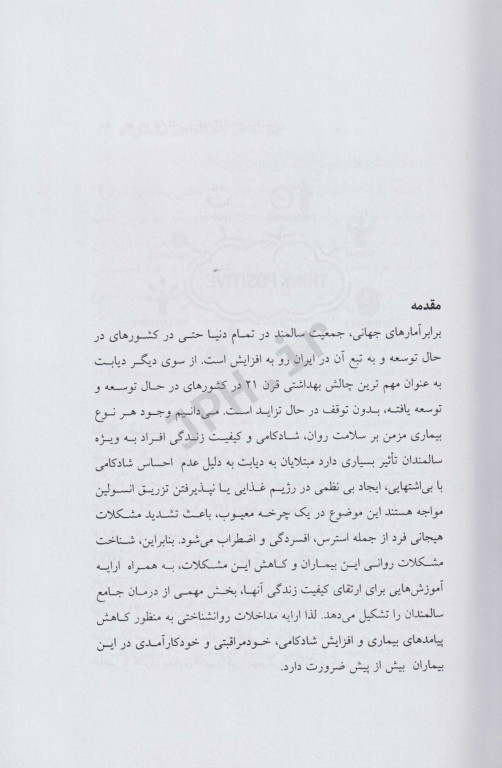 مقدمه
برابرآمارهای جهانی، جمعیت سالمند در تمام دنیا حتی در کشورهای در
حال توسعه و به تبع آن در ایران رو به افزایش است. از سوی دیگر دیابت
به عنوان مهم ترین چالش بهداشتی قرن ۲۱ در کشورهای در حال توسعه و
توسعه یافته، بدون توقف در حال تزاید است. می‌دانیم وجود هر نوع
بیماری مزمن بر سلامت روان، شادکامی و کیفیت زندگی افراد به ویژه
سالمندان تأثیر بسیاری دارد مبتلایان به دیابت به دلیل عدم احساس شادکامی
با بی‌اشتهایی، ایجاد بی نظمی در رژیم غذایی یا نپذیرفتن تزریق انسولین
مواجه هستند این موضوع در یک چرخه معیوب، باعث تشدید مشکلات
هیجانی فرد از جمله استرس، افسردگی و اضطراب می‌شود. بنابراین، شناخت
مشکلات روانی این بیماران و کاهش این مشکلات، به همراه ارایه
آموزش‌هایی برای ارتقای کیفیت زندگی آنها، بخش مهمی از درمان جامع
سالمندان را تشکیل می‌دهد. لذا ارایه مداخلات روانشناختی به منظور کاهش
پیامدهای بیماری و افزایش شادکامی، خودمراقبتی و خودکارآمدی در این
بیماران بیش از پیش ضرورت دارد.
JPH.ir
THINK POSITIVE